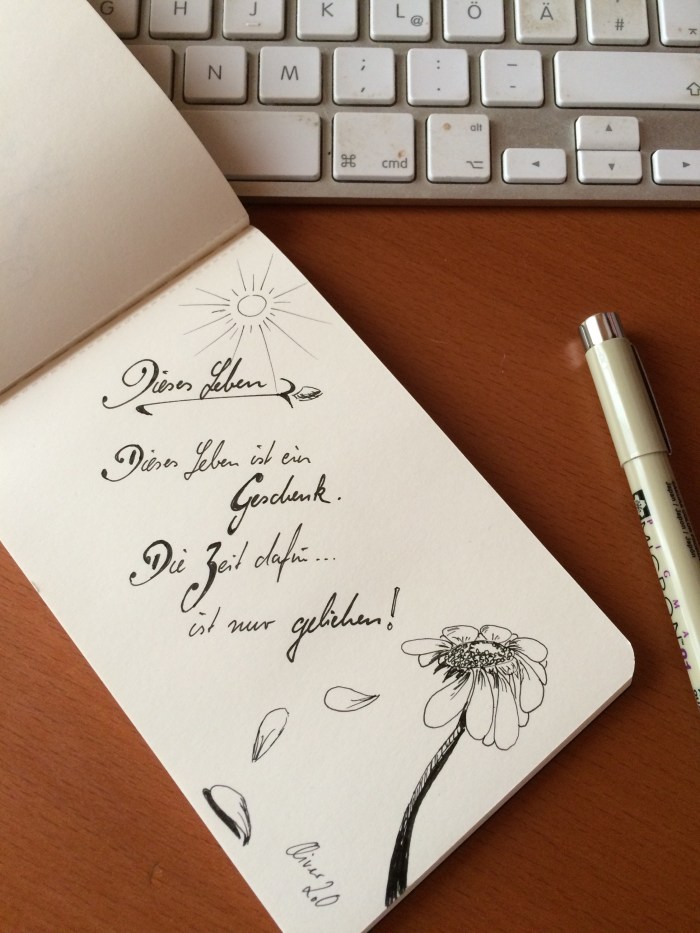 G H J K L @ Ö Ä #
N M ; , : . _ -
⌘ cmd alt ⌥
◄ ▲ ▼ ►
Dieses Leben
Dieses Leben ist ein
Geschenk.
Die Zeit dafür...
ist nur geliehen!
Oliver 2.0
PIGMA
MICRON